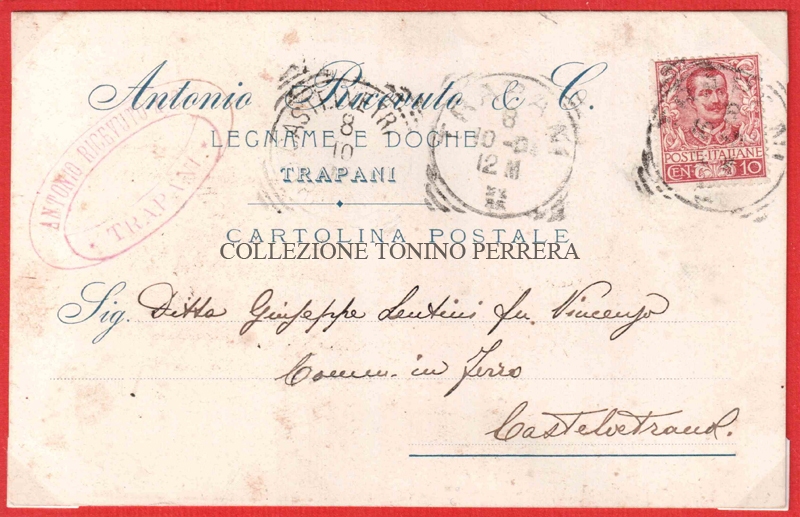 Antonio Ricevuto & C.
LEGNAME E DOGHE
TRAPANI
CARTOLINA POSTALE
COLLEZIONE TONINO PERRERA
Sig. Ditta Giuseppe Lentini fu Vincenzo
Comm. in Ferro
Castelvetrano.
ANTONIO RICEVUTO
TRAPANI
TRAPANI
8
10-01
12 M
8
10
POSTE·ITALIANE
CEN 10